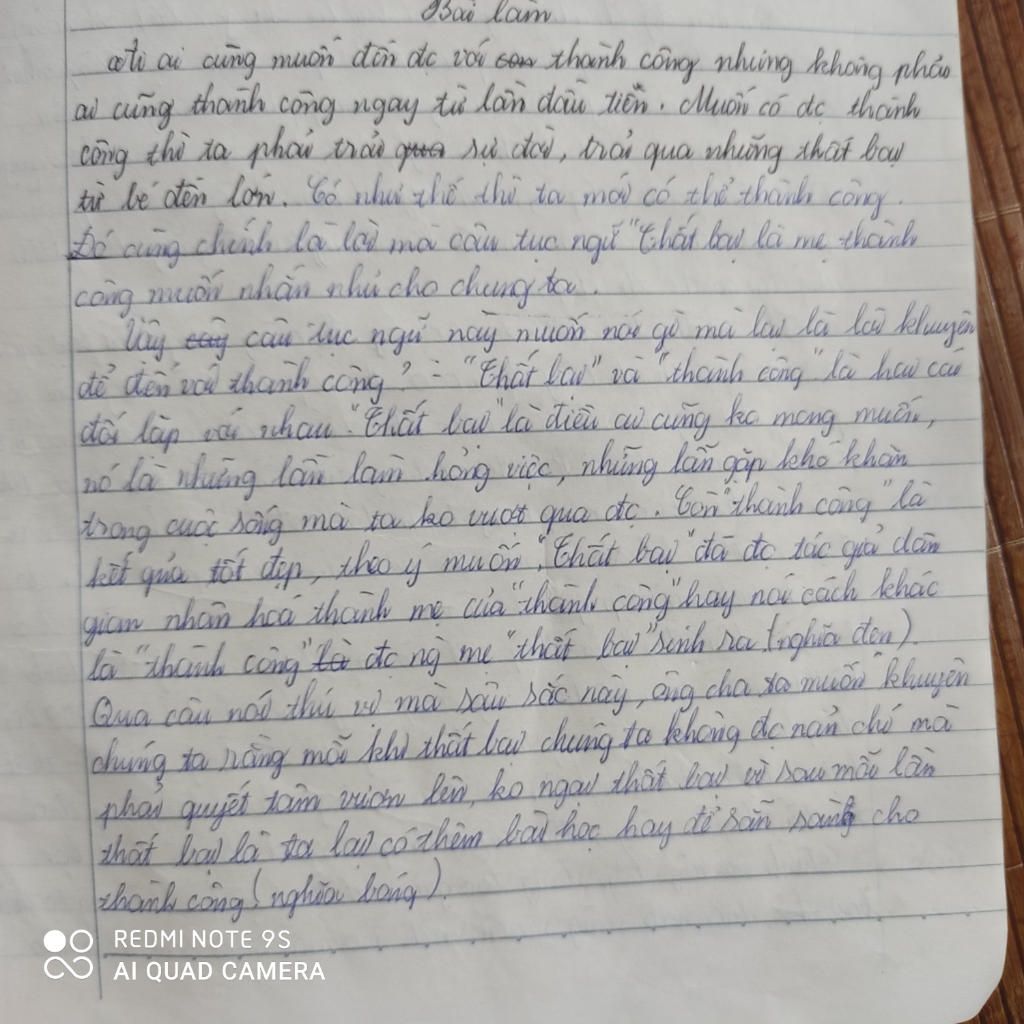 Bài làm
ai cũng muốn đến đc với con thành công nhưng không phải
ai cũng thành công ngay từ lần đầu tiên. Muốn có đc thành
công thì ta phải trải qua sự đời, trải qua những thất bại
từ bé đến lớn. Có như thế thì ta mới có thể thành công.
Đó cũng chính là lời mà câu tục ngữ "Thất bại là mẹ thành
công muốn nhắn nhủ cho chúng ta.
Vậy câu tục ngữ này muốn nói gì mà lại là lời khuyên
để đến với thành công? - "Thất bại" và "thành công" là hai cái
đối lập với nhau. "Thất bại" là điều ai cũng ko mong muốn,
nó là những lần làm hỏng việc, những lần gặp khó khăn
trong cuộc sống mà ta ko vượt qua đc. Còn "thành công" là
kết quả tốt đẹp, theo ý muốn. "Thất bại" đã đc tác giả dân
gian nhân hoá thành mẹ của "thành công" hay nói cách khác
là "thành công" là đc ng mẹ "thất bại" sinh ra (nghĩa đen).
Qua câu nói thú vị mà sâu sắc này, ông cha ta muốn khuyên
chúng ta rằng mỗi khi thất bại chúng ta không đc nản chí mà
phải quyết tâm vươn lên, ko ngại thất bại vì sau mỗi lần
thất bại là ta lại có thêm bài học hay để sẵn sàng cho
thành công (nghĩa bóng).
REDMI NOTE 9S
AI QUAD CAMERA